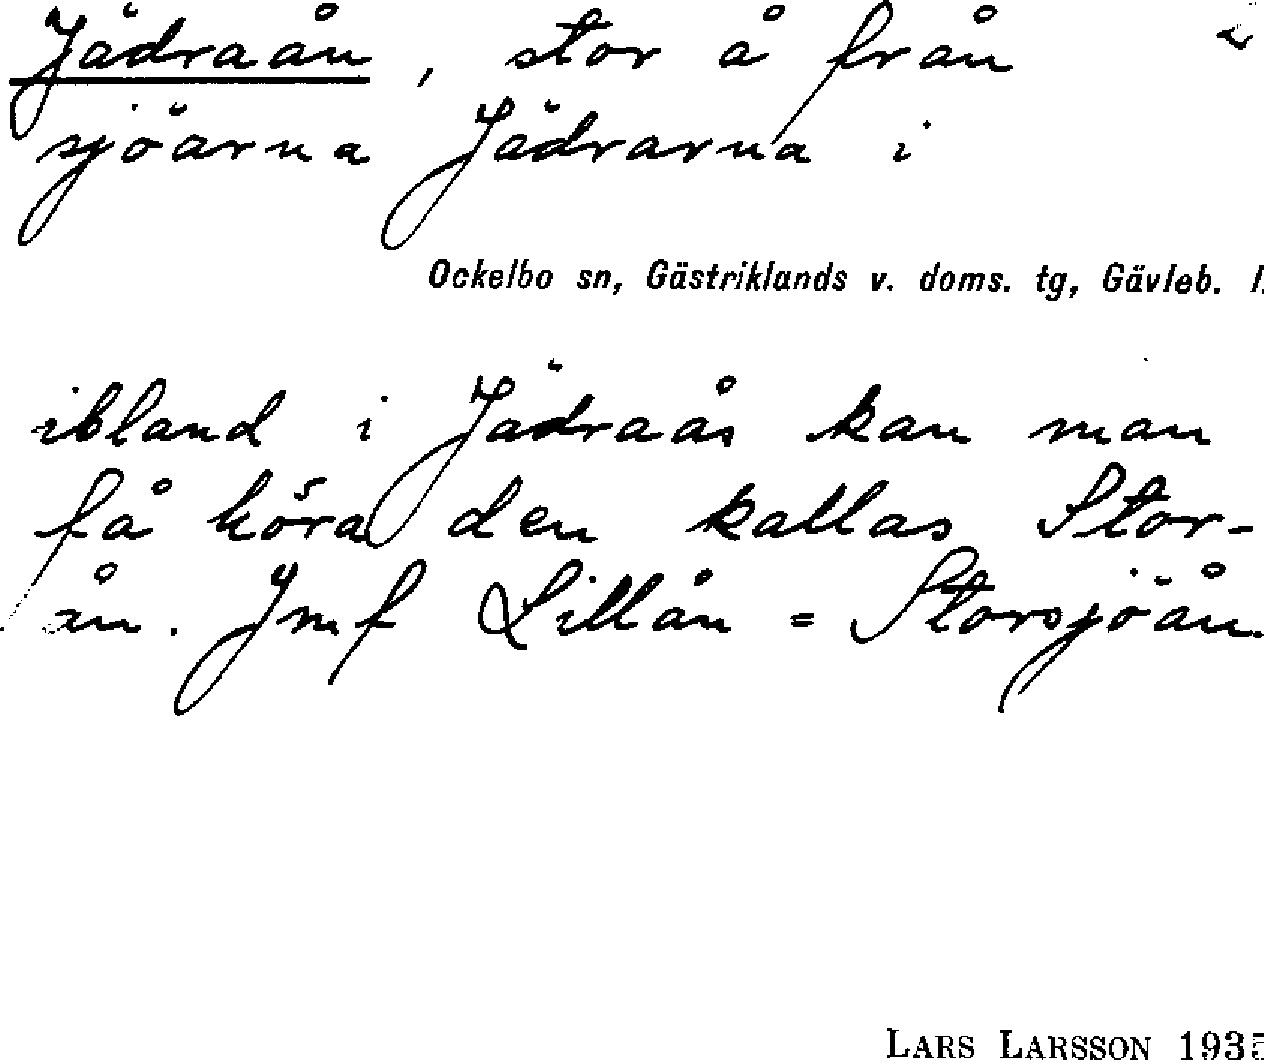 Jädraån, stor å från
sjöarna Jädrarna i
Ockelbo sn, Gästriklands v. doms. tg, Gävleb. l.
ibland i Jädraås kan man
få höra den kallas Stor-
ån. Jmf Lillån = Storsjöån.
LARS LARSSON 1935